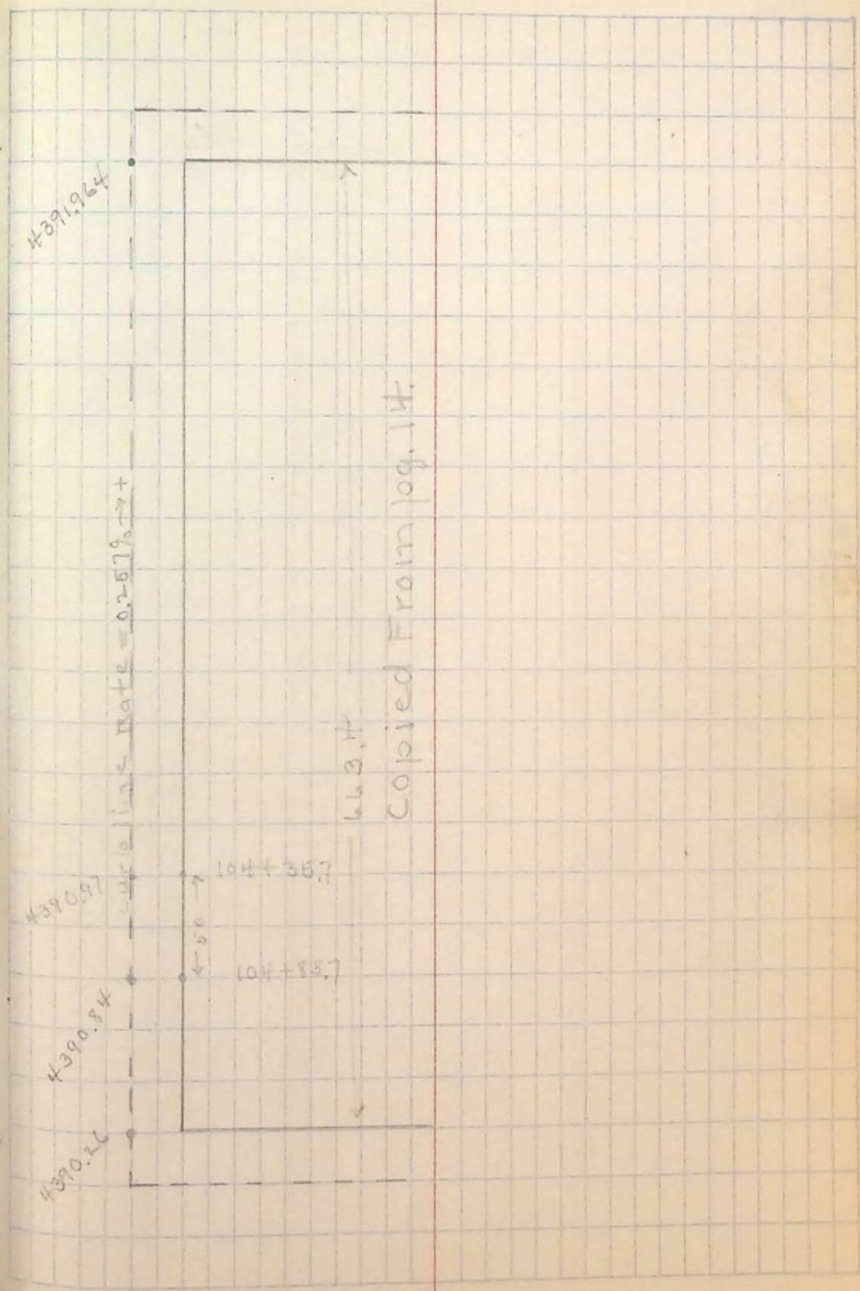 4391.964
curb line Rate = 0.257% → +
4390.97
4390.84
4390.26
104+35.7
← 50 →
104+85.7
663.4
Copied From pg. 14.